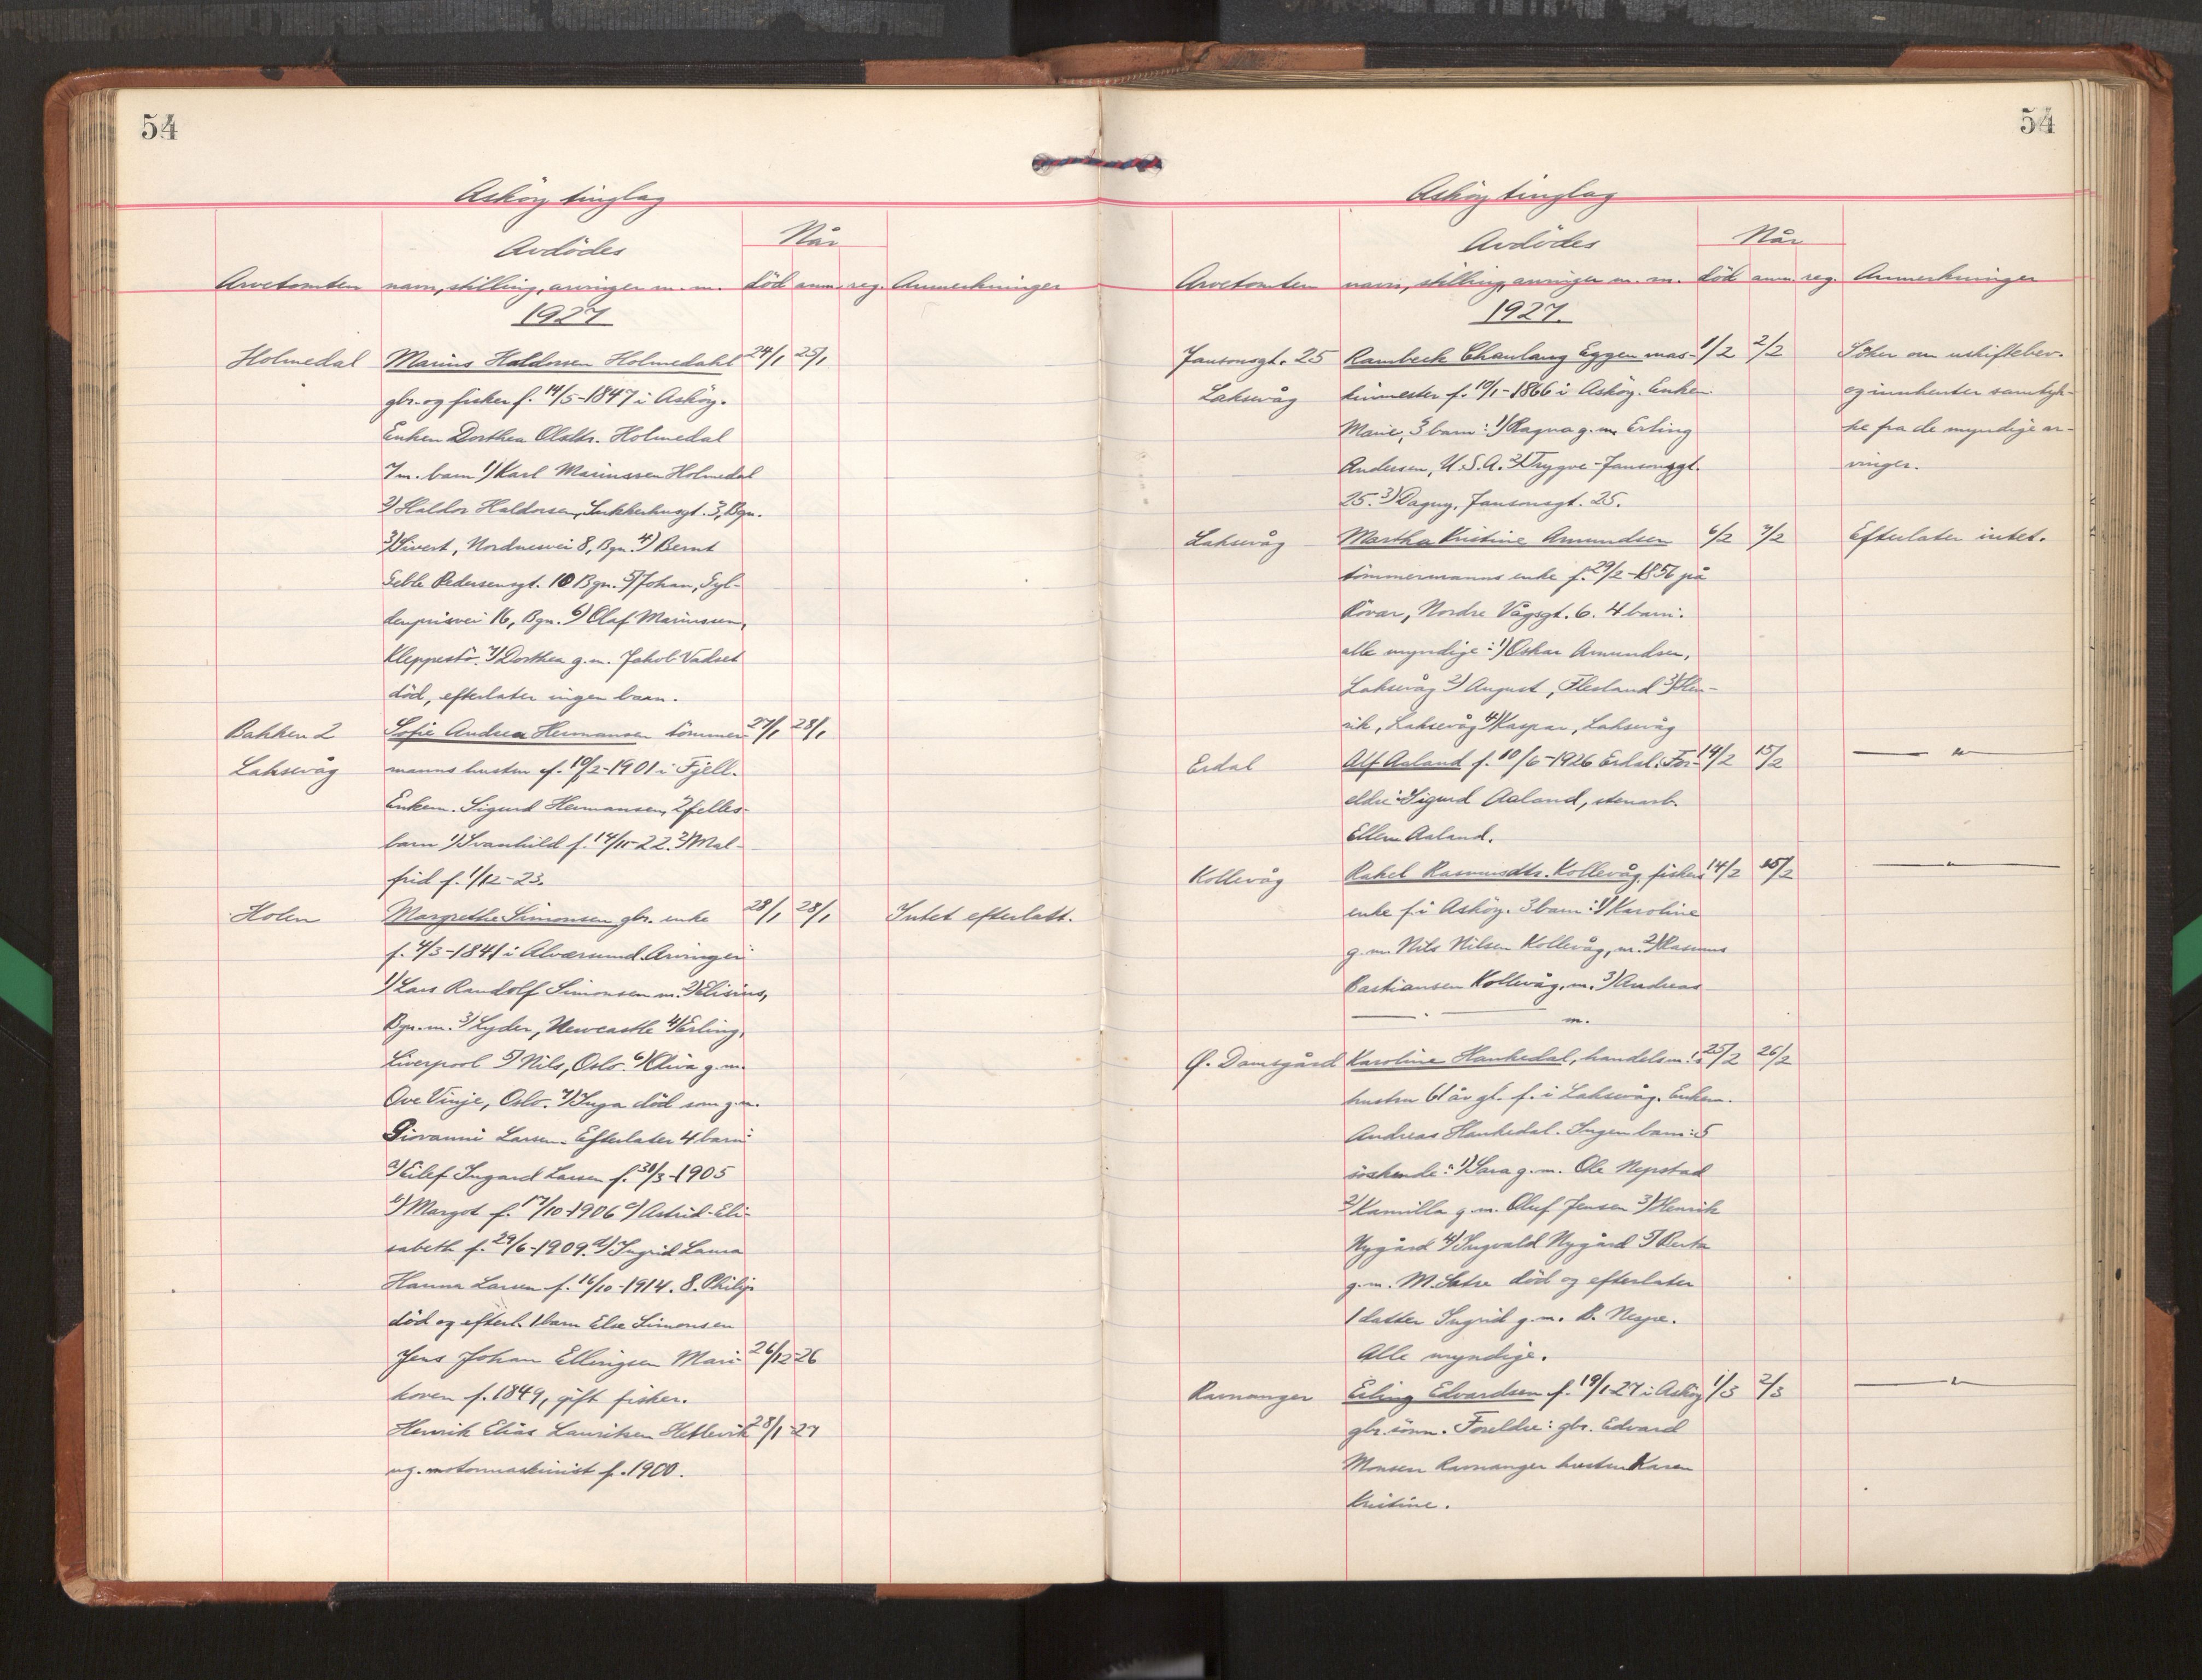 54
Asköy tinglag
Avdödes
Når
Arvetomten navn, stilling, arvinger m.m. död anm. reg. Anmerkninger
1927
Holmedal Marius Haldorsen Holmedahl 24/1 25/1
gbr. og fisker f. 14/5-1847 i Asköy.
Enken Dorthea Olsdtr. Holmedal
7 m. barn 1) Karl Marinussen Holmedal
2) Haldor Haldorsen, Sukkerhusgt. 3, Bgn.
3) Sivert, Nordnesvei 8, Bgn. 4) Bernt
Geble Pedersensgt. 10 Bgn. 5) Johan, Gyl-
denprisvei 16, Bgn. 6) Olaf Marinussen,
Kleppestö. 7) Dorthea g.m. Jakob Vadset
död, efterlater ingen barn.
Bakken 2 Sofie Andrea Hermansen tömmer- 27/1 28/1
Laksevåg manns hustru f. 10/2-1901 i Fjell.
Enkem. Sigurd Hermansen, 2 felles-
barn 1) Svanhild f. 14/11-22. 2) Mal-
frid f. 1/12-23.
Holen Margrethe Simonsen gbr. enke 28/1 28/1 Intet efterlatt.
f. 4/3-1841 i Alversund. Arvinger:
1) Lars Randolf Simonsen m. 2) Elisius,
Bgn. m. 3) Lyder, Newcastle 4) Erling,
Liverpool 5) Nils, Oslo. 6) Oliva g.m.
Ove Vinje, Oslo. 7) Inga död som g.m.
Giovanni Larsen. Efterlater 4 barn:
a) Eilef Ingard Larsen f. 30/3-1905
b) Margot f. 17/10-1906 c) Astrid-Eli-
sabeth f. 29/6-1909. d) Ingrid Laura
Hanna Larsen f. 16/10-1914. 8. Philip
död og efterl. 1 barn Else Simonsen
Jens Johan Ellingsen Mari- 26/12-26
koven f. 1849, gift fisker.
Henrik Elias Lauritsen Hetlevik 28/1-27
ug. motormaskinist f. 1900.
54
Asköy tinglag
Avdödes
Når
Arvetomten navn, stilling, arvinger m.m. död anm. reg. Anmerkninger
1927.
Jansonsgt. 25 Rambeck Chanlang Eggen mas- 1/2 2/2 Söker om uskiftebev.
Laksevåg kinmester f. 10/1-1866 i Asköy. Enken og innhenter samtyk-
Marie, 3 barn: 1) Ragna g.m. Erling ke fra de myndige ar-
Andersen, U.S.A. 2) Trygve-Jansonsgt. vinger.
25. 3) Dagny, Jansonsgt. 25.
Laksevåg Martha Kristine Amundsen 6/2 7/2 Efterlater intet.
tömmermanns enke f. 29/2-1856 på
Rövar, Nordre Vågsgt. 6. 4 barn.
alle myndige: 1) Oskar Amundsen,
Laksevåg 2) August, Flesland 3) Hen-
rik, Laksevåg 4) Kaspar, Laksevåg
Erdal Alf Aaland f. 10/6-1926 Erdal. For- 14/2 15/2 — " —
eldre: Sigurd Aaland, stenarb.
Ellen Aaland.
Kollevåg Rakel Rasmusdtr. Kollevåg fiskers 14/2 15/2 — " —
enke f. i Asköy. 3 barn: 1) Karoline
g.m. Nils Nilsen Kollevåg, m. 2) Rasmus
Bastiansen Kollevåg, m. 3) Andreas
— " — m.
Ö. Damsgård Karoline Haukedal, handelsm.'s 25/2 26/2
hustru 61 år gl. f. i Laksevåg. Enkem.
Andreas Haukedal. Ingen barn: 5
söskende: 1) Sara g.m. Ole Nepstad
2) Kamilla g.m. Oluf Jensen 3) Henrik
Nygård 4) Ingvald Nygård 5) Berta
g.m. M. Sætre död og efterlater
1 datter Ingrid g.m. B. Nespe.
Alle myndige.
Ravnanger Erling Edvardsen f. 19/1-27 i Asköy 1/3 2/3 — " —
gbr. sönn. Foreldre: gbr. Edvard
Monsen Ravnanger hustru Karen
Kristine.